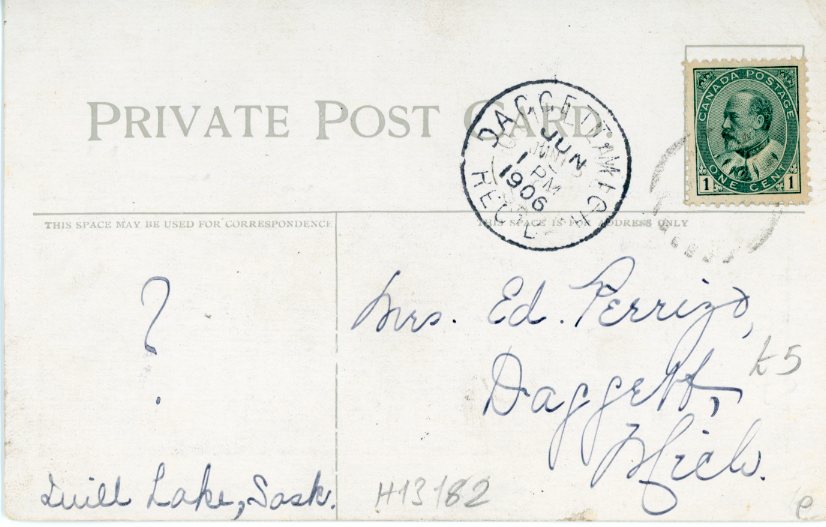 PRIVATE POST CARD.
CANADA POSTAGE
1 ONE CENT 1
DAGGETT, MICH
JUN
1 PM
1906
REC'D
THIS SPACE MAY BE USED FOR CORRESPONDENCE
THIS SPACE IS FOR ADDRESS ONLY
?
Mrs. Ed. Perrizo,
Daggett,
Mich.
K5
Quill Lake, Sask.
H13182
e